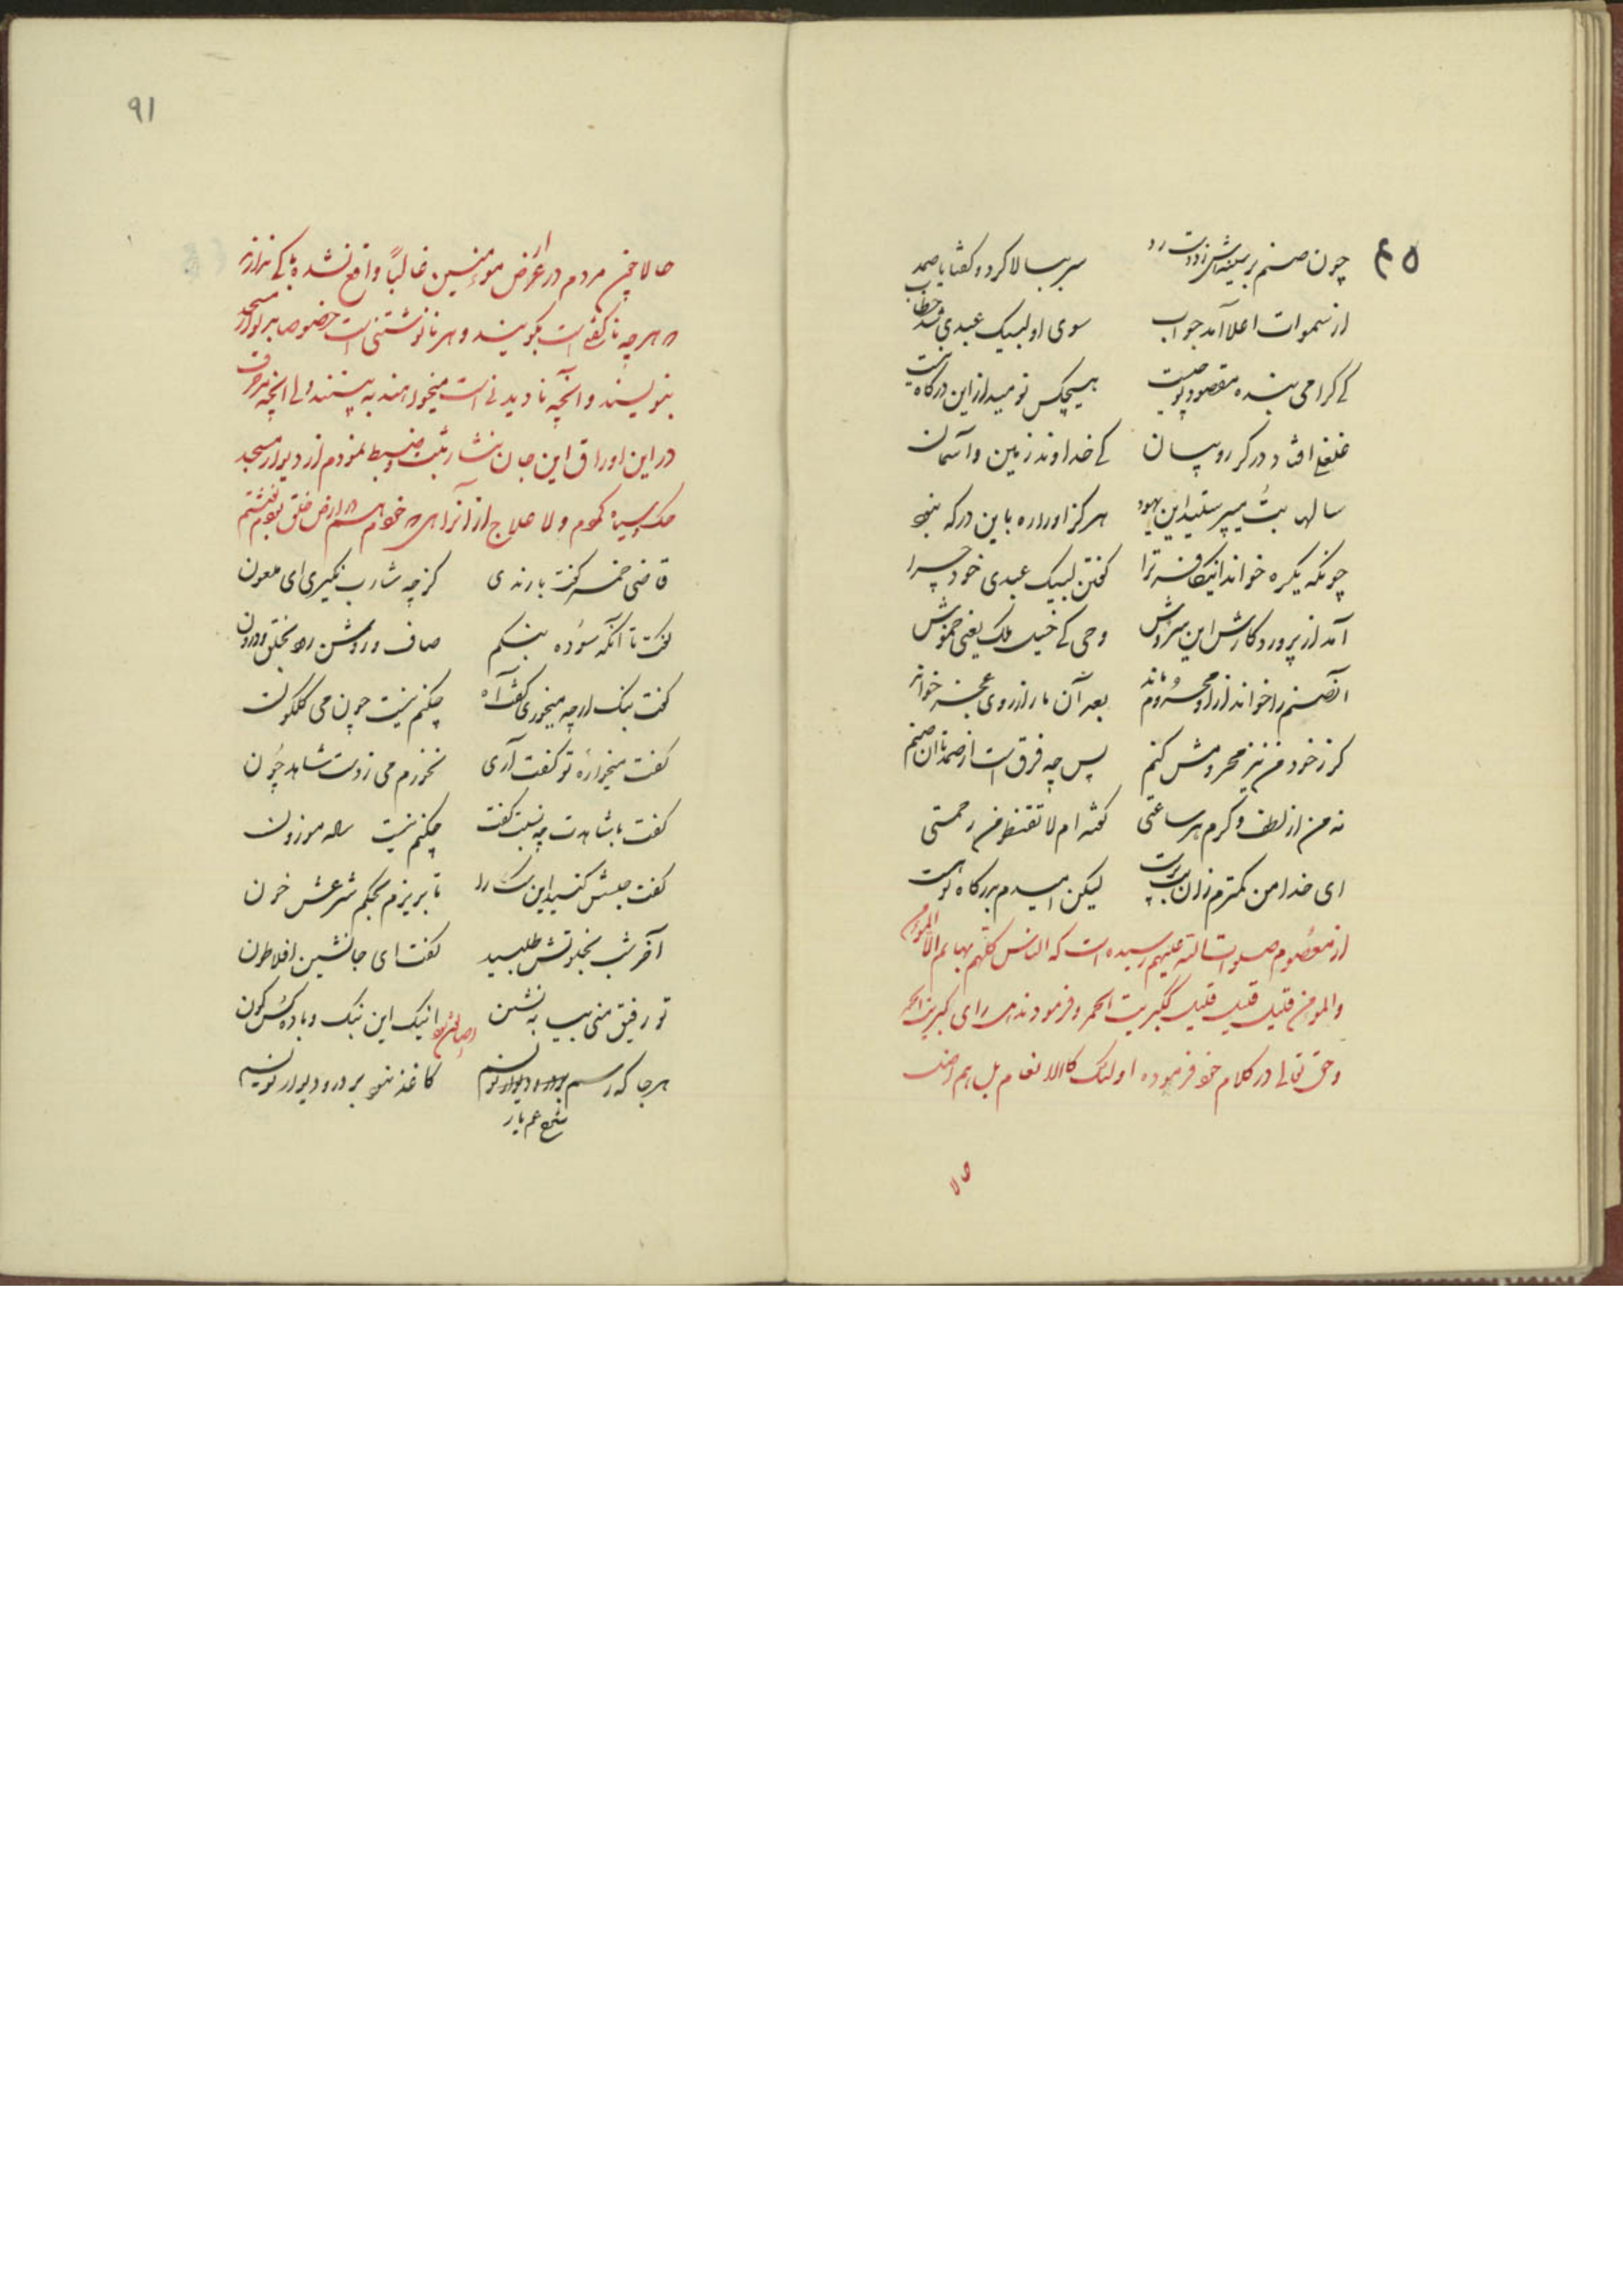 چون صنم بر سینه‌اش زد دست رد سر ببالا کرد و گفتا یا صمد
از سموات اعلا آمد جواب سوی او لبیک عبدی شد خطاب
کی گرامی بنده مقصود تو چیست هیچکس نومید از این درگاه نیست
غلغلی افتاد در کروبیان کی خداوند زمین و آسمان
سالها بت میپرستید این یهود هرگز او را ره باین درگه نبود
چونکه یکره خواند اینک کافر ترا گفتن لبیک عبدی خود چرا
آمد از پروردگارش این سروش وحی کی خیل ملک یعنی خموش
آن صنم را خواند از او محروم ماند بعد آن ما را از روی عجز خواند
گر ز خود من نیز محرومش کنم پس چه فرق است از صمد تا آن صنم
نه من از لطف و کرم هر ساعتی گفته‌ام لا تقنطو من رحمتی
ای خدا من کمترم زان بت پرست لیکن امیدم بدرگاه تو است
از معصوم صلوات الله علیهم رسیده است که الناس کلهم بهایم الا المؤمن
والمؤمن قلیل قلیل قلیل ککبریت احمر و فرمودند
و حق تعالی در کلام خود فرموده اولئک کالانعام بل هم اضل
۹۱
حالا چنین مردم در اعراض مومنین غالباً واقع نشده
هر چه ناگفتنی است بگویند و هر نانوشتنی است خصوصا بر دیوار مسجد
بنویسند و آنچه نادیدنی است میخواهند به بینند ولی آنچه
در این اوراق این جان نثار ثبت و ضبط نمودم از دیوار مسجد
قاضی خمسه گفت با رندی کز چه شارب نگیری ای ملعون
گفت تا آنگه سوده بنگم صاف و روشن رود بحلق درون
گفت بنگ از چه میخوری گفت آه چکنم نیست چون می گلگون
گفت میخواره تو گفت آری نخورم می ز دست شاهد چون
گفت با شاهدت چه نسبت گفت چکنم نیست ساده موزون
گفت حبسش کنید این سگ را تا بریزم بحکم شرعش خون
آخر شب بخلوتش طلبید گفت ای جانشین افلاطون
تو رفیق منی بیا بنشین اینک این بنگ و باده
هر جا که رسم بر در و دیوار نویسم کاغذ نبود بر در و دیوار نویسم